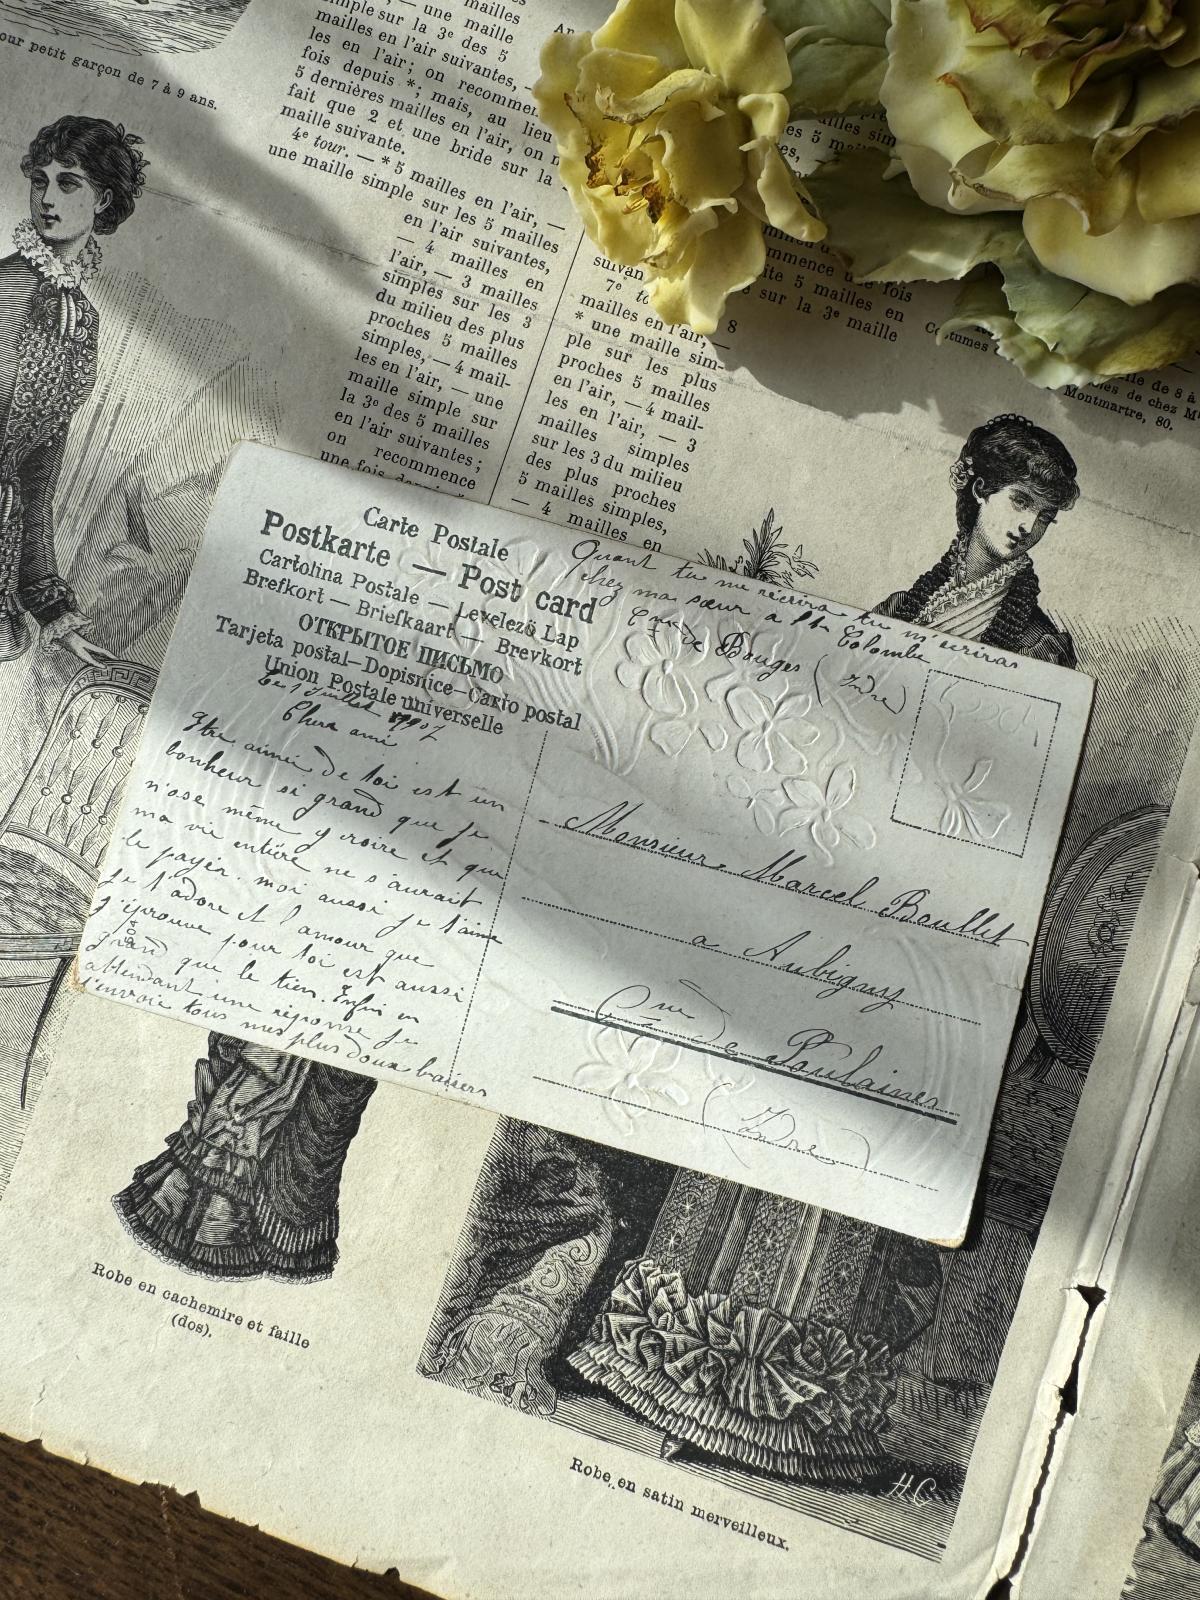 our petit garçon de 7 à 9 ans.
mailles
simple sur la 3e des 5
mailles en l'air suivantes, —
les en l'air; on recommen
fois depuis *; mais, au lieu
5 dernières mailles en l'air, on n
fait que 2 et une bride sur la
maille suivante.
4e tour. — * 5 mailles en l'air, —
une maille simple sur les 5 mailles
en l'air suivantes,
— 4 mailles en
l'air, — 3 mailles
simples sur les 3
du milieu des plus
proches 5 mailles
simples, — 4 mail-
les en l'air, — une
maille simple sur
la 3e des 5 mailles
en l'air suivantes;
on recommence
une fois
7e
mailles en l'air, —
* une maille sim-
ple sur les plus
proches 5 mailles
en l'air, — 4 mail-
les en l'air, — 3
mailles simples
sur les 3 du milieu
des plus proches
5 mailles simples,
— 4 mailles en
mmence une fois
ite 5 mailles en
8 sur la 3e maille
Costumes
lle de 8 à
Montmartre, 80.
Carte Postale
Postkarte — Post card
Cartolina Postale — Levelező Lap
Brefkort — Briefkaart — Brevkort
ОТКРЫТОЕ ПИСЬМО
Tarjeta postal—Dopisnice—Carto postal
Union Postale universelle
Le 1 Juillet 1907
Cher ami
Être aimée de toi est un
bonheur si grand que je
n'ose même y croire et que
ma vie entière ne s'aurait
le payer. moi aussi je t'aime
je t'adore et l'amour que
j'éprouve pour toi est aussi
grand que le tien. Enfin en
attendant une réponse je
t'envoie tous mes plus doux baisers
Quant tu me récrira tu m'ecriras
chez ma sœur a Ste Colombe
Cne de Bouges (Indre)
Monsieur Marcel Boullet
a Aubigny
Cne de Poulaines
(Indre)
Robe en cachemire et faille
(dos).
H.C
Robe en satin merveilleux.